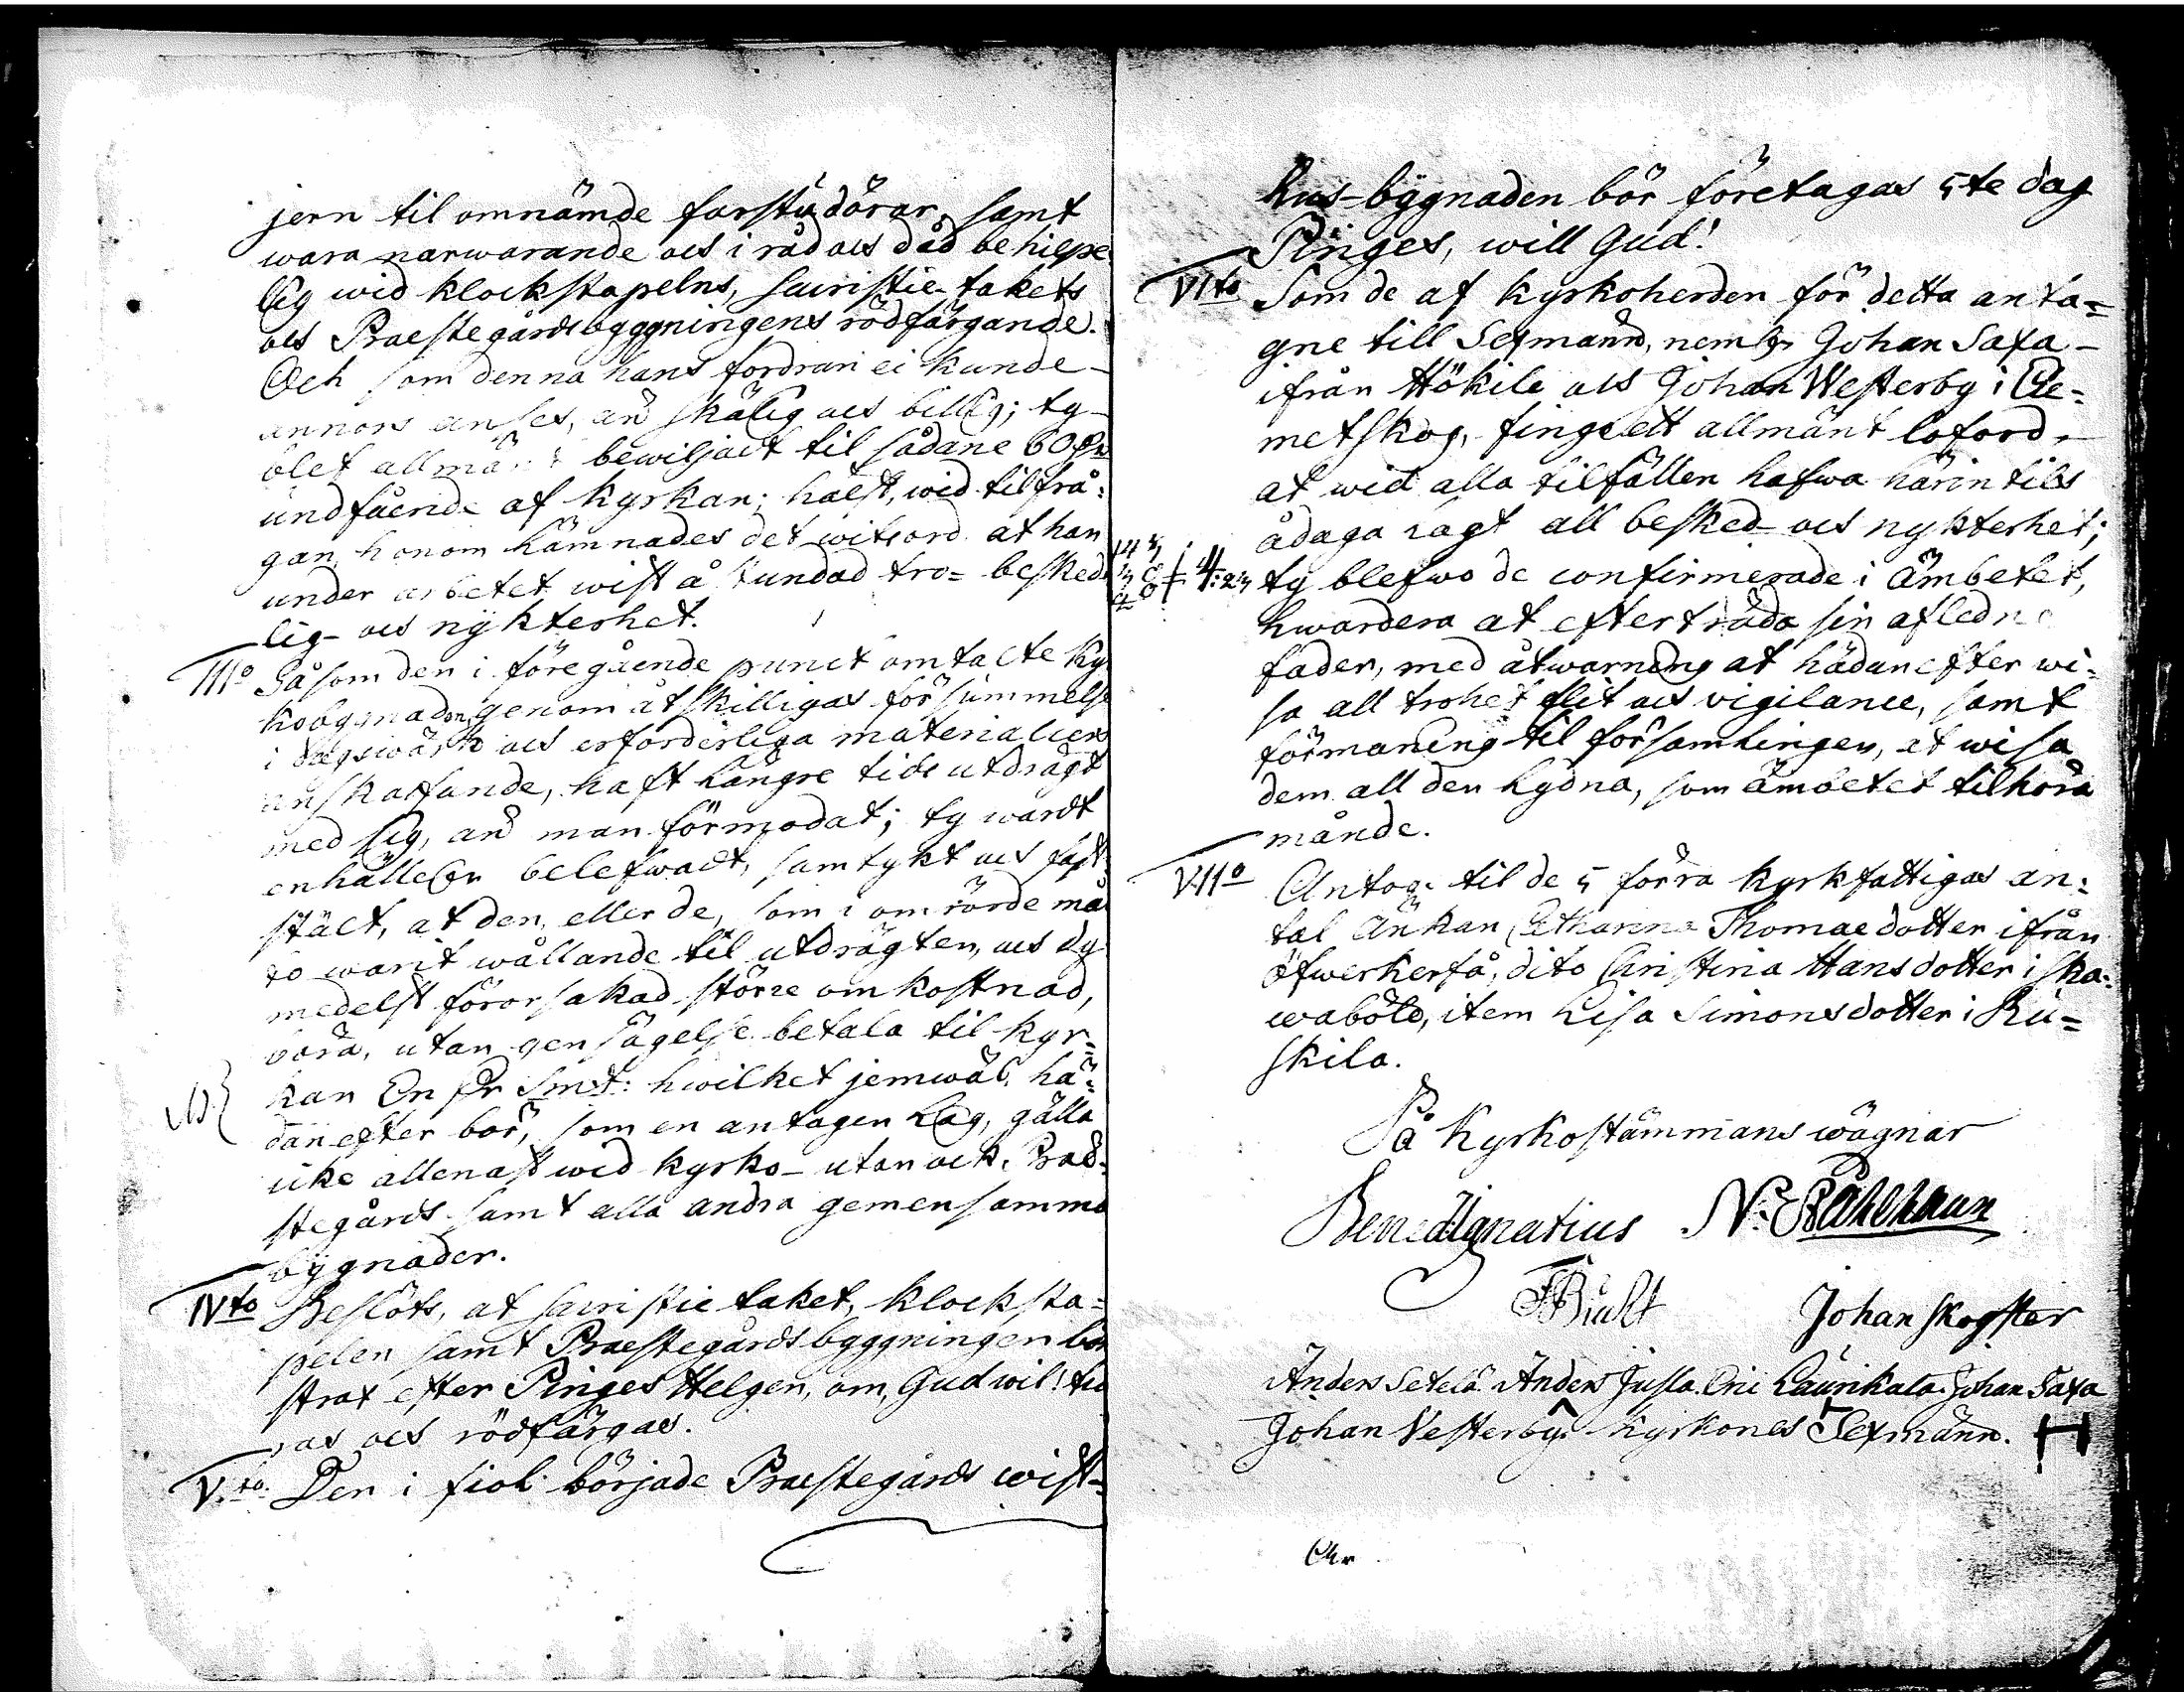 jern til omnämde farstudörar, samt
wara narwarande och i råd och dåd behielpe
lig wid klockstapelns, sacristie-takets
och Praestegårdsbyggningens rödfärgande.
Och som denna hans fordran ei kunde
annors anses, än skälig och billig; ty
blef allmänt bewiljadt til sådane 60 
undfående af kyrkan; hälst, wid tilfrå=
gan, honom lämnades det witsord at han
under arbetet wist åstundad tro= besked
lig- och nykterhet.
III° Såsom den i föregående punct omtalte Kyr
kobygnaden, genom åtskilligas försummelse
i dagswärk och erforderliga materialiers
anskaffande, haft längre tids utdrägt
med sig, än man förmodat; ty wardt
enhälleligen belefwadt, samtykt och fast=
stält, at den, eller de, som i omrörde måt
to warit wållande til utdrägten, och dy
medelst förorsakad större omkostnad,
böra, utan gensägelse betala til kyr=
kan En Smt: hwilket jemwäl hä=
dan efter bör, som en antagen lag, gälla
icke allenast wid kyrko- utan ock Præ=
stegårds samt alla andra gemensamma
bygnader.
IVto Beslöts, at sacristie taket, klocksta=
pelen samt Praestegårdsbyggningen bör
strax efter Pinges Helgen, om Gud wil! tiä
ras och rödfärgas.
V.to Den i fiol började Praestegårds wist=
hus-bygnaden bör företagas 5te dag
Pinges, will Gud!
VIto Som de af kyrkoherden för detta anta=
gne till Sexmänn, neml. Johan Saxa
ifrån Hökilä och Johan Westerby i Cle=
metskog, finge ett allmänt loford,
at wid alla tilfällen hafwa härintils
ådagalagt all besked och nykterhet;
ty blefwo de confirmerade i Ämbetet,
hwardera at efterträda sin afledne
fader, med åtwarning at hädanefter wi=
sa all trohet flit och vigilance, samt
förmaning til församlingen, at wisa
dem all den lydna, som ämbetet tilhöra
månde.
VII° Antogs til de 5 förra kyrkfattigas an=
tal Änkan Catharina Thomaedotter ifrån
öfwerkerså, dito Christina Hansdotter i Ska=
waböle, item Lisa Simonsdotter i Ru=
skila.
På Kyrkostämmans wägnar
Bened Ignatius N: Påhlman
Johan Skogster
Anders Setelä. Anders Jusla. Eric Laurikala. Johan Saxa
Johan Vesterby. Kyrkones Sexmänn.